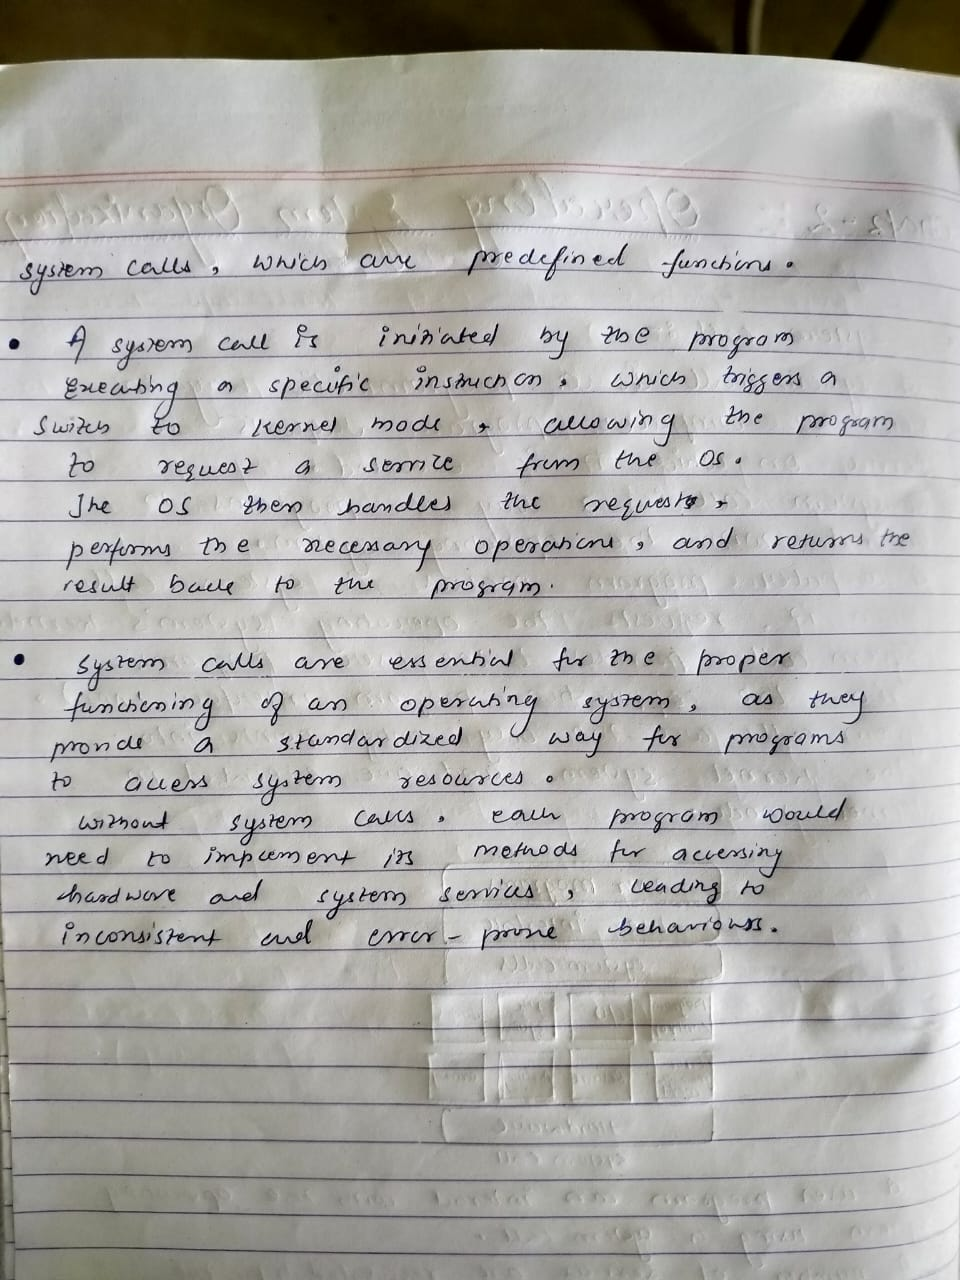 system calls, which are predefined functions.
• A system call is initiated by the program
executing a specific instruction, which triggers a
switch to kernel mode, allowing the program
to request a service from the OS.
The OS then handles the request,
performs the necessary operations, and returns the
result back to the program.
• system calls are essential for the proper
functioning of an operating system, as they
provide a standardized way for programs
to access system resources.
without system calls, each program would
need to implement its methods for accessing
hardware and system services, leading to
inconsistent and error-prone behaviours.